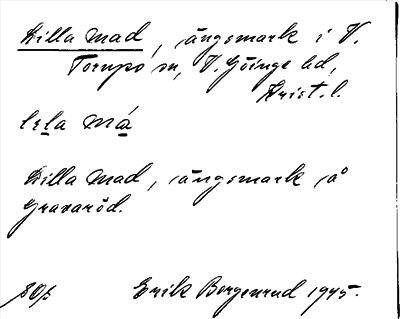 Lilla mad, ängsmark i V.
Torups sn, V. Göinge hd,
Krist. l.
lɪla má
Lilla mad, ängsmark på
Gravaröd.
Erik Bergenrud 1945.